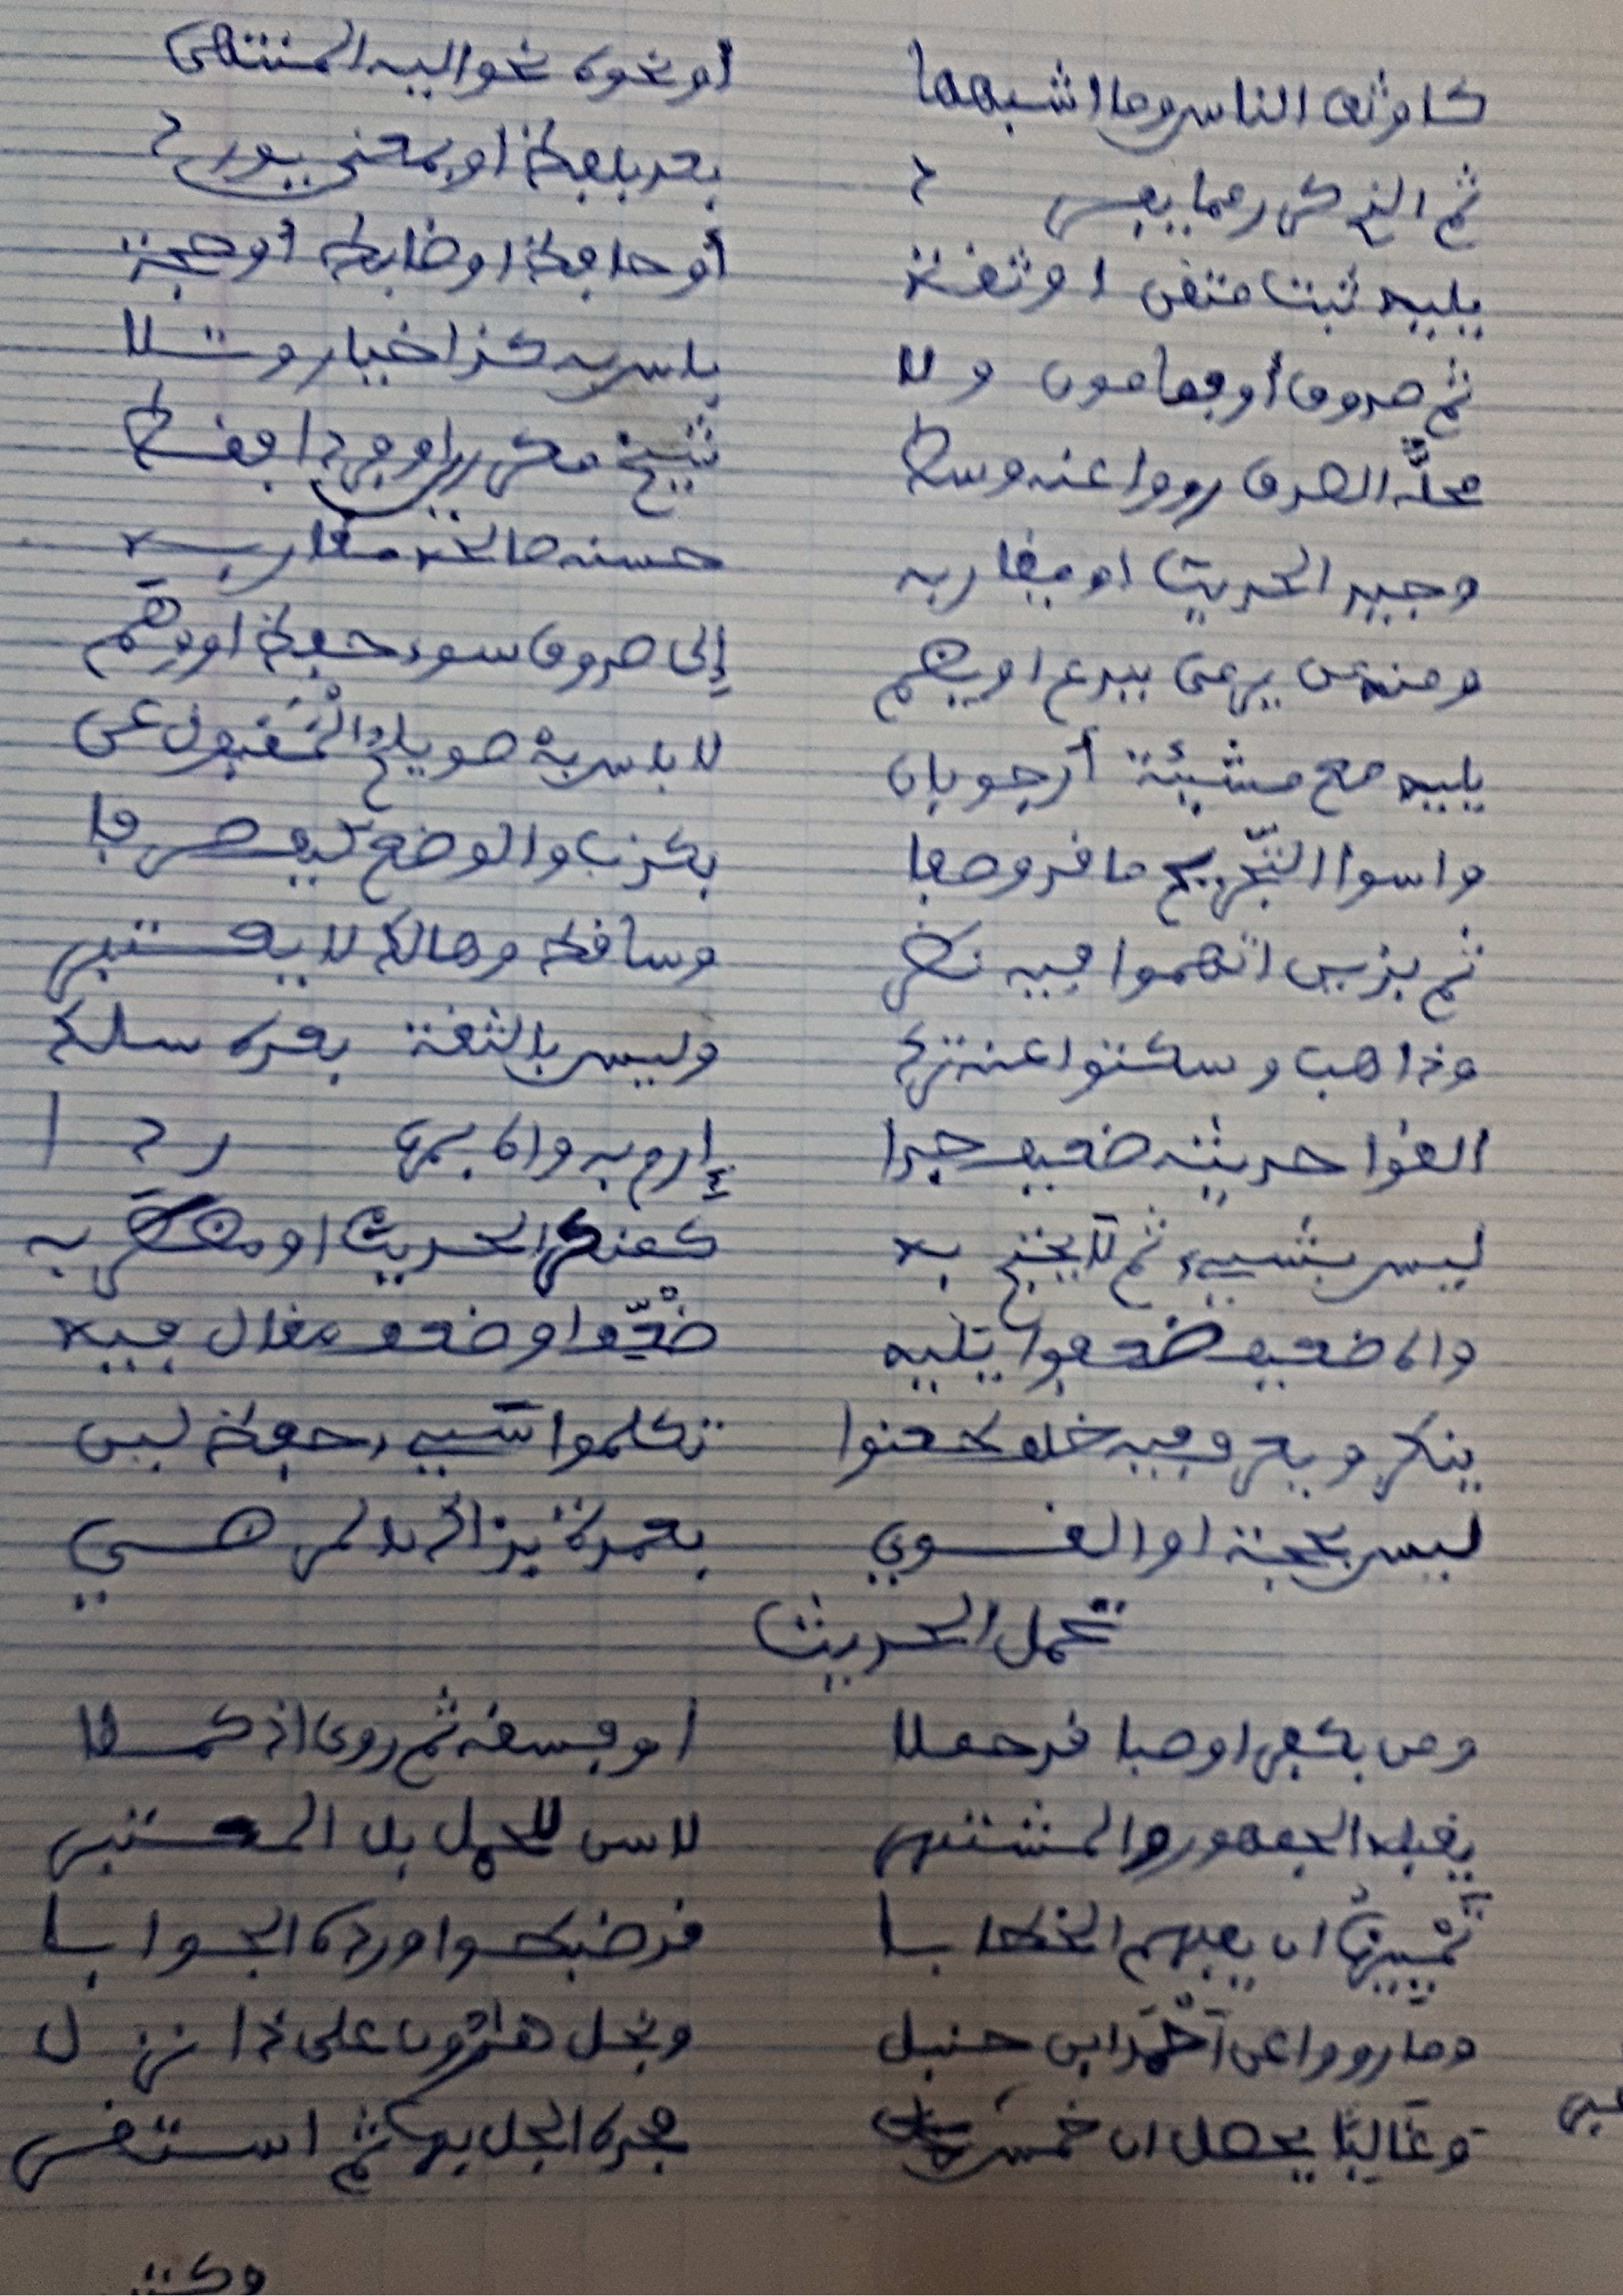 كأوثق الناس وما أشبهها أو نحوه نحو إليه المنتهى
ثم الذي كرر مما يفرد بعد بلفظ أو بمعنى يورد
يليه ثبت متقن أو ثقة أو حافظ أو ضابط أو حجة
ثم صدوق أو فمامون ولا بأس به كذا خيار وتلا
محله الصدق رووا عنه وسط شيخ مكرر أو فردا فقط
وجيد الحديث أو يقاربه حسنه صالحه مقاربه
ومنه من يرمى ببدع أو يضم إلى صدوق سوء حفظ أو وهم
يليه مع مشيئة أرجو بأن لا بأس به صويلح والمقبول عن
واسوأ التجريح ما قد وصفا بكذب والوضع كيف صرفا
ثم بذين اتهموا فيه نظر وساقط وهالك لا يعتبر
وذاهب وسكتوا عنه ترك وليس بالثقة بعده سلك
القوا حديثه ضعيف جدا إرم به واه بمره ردا
ليس بشيء ثم لا يحتج به كمنكر الحديث أو مضطربه
واه ضعيف ضعفوا يليه ضعف أو ضعف مقال فيه
ينكر ويعرف فيه خلف طعنوا تكلموا سيء حفظ لين
ليس بحجة أو القوي بعمدة بذاك بالمرضي
تحمل الحديث
ومن بكفر أو صبا قد حملا أو فسقه ثم روى إذ كملا
يقبله الجمهور والمشتهر لا سن للحمل بل المعتبر
تمييزه أن يفهم الخطابا قد ضبطوا ورده الجوابا
وما رووا عن أحمد ابن حنبل ونجل هارون على ذا نزل
وغالبا يحصل إن خمس غبر فحده الجل بها ثم استقر